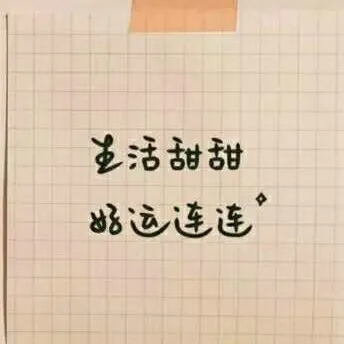 生活甜甜
好运连连